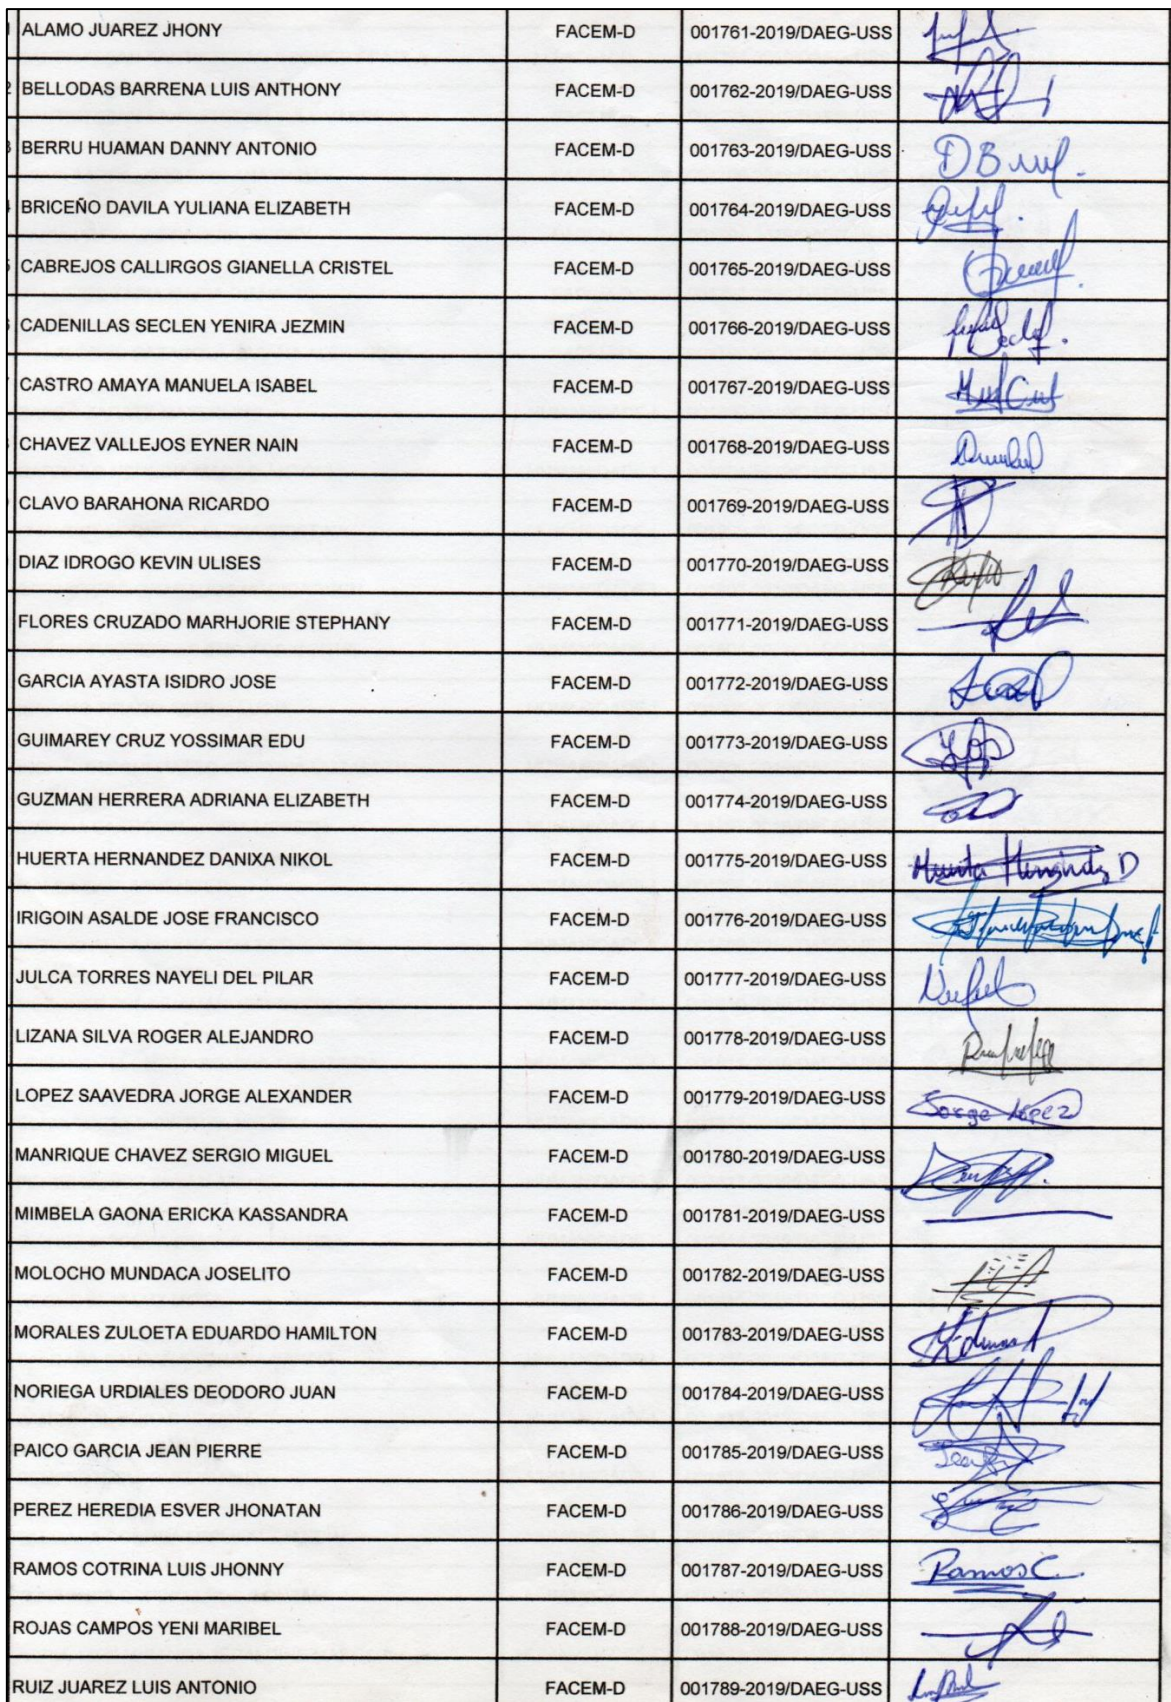 ALAMO JUAREZ JHONY FACEM-D 001761-2019/DAEG-USS
BELLODAS BARRENA LUIS ANTHONY FACEM-D 001762-2019/DAEG-USS
BERRU HUAMAN DANNY ANTONIO FACEM-D 001763-2019/DAEG-USS
BRICEÑO DAVILA YULIANA ELIZABETH FACEM-D 001764-2019/DAEG-USS
CABREJOS CALLIRGOS GIANELLA CRISTEL FACEM-D 001765-2019/DAEG-USS
CADENILLAS SECLEN YENIRA JEZMIN FACEM-D 001766-2019/DAEG-USS
CASTRO AMAYA MANUELA ISABEL FACEM-D 001767-2019/DAEG-USS
CHAVEZ VALLEJOS EYNER NAIN FACEM-D 001768-2019/DAEG-USS
CLAVO BARAHONA RICARDO FACEM-D 001769-2019/DAEG-USS
DIAZ IDROGO KEVIN ULISES FACEM-D 001770-2019/DAEG-USS
FLORES CRUZADO MARHJORIE STEPHANY FACEM-D 001771-2019/DAEG-USS
GARCIA AYASTA ISIDRO JOSE FACEM-D 001772-2019/DAEG-USS
GUIMAREY CRUZ YOSSIMAR EDU FACEM-D 001773-2019/DAEG-USS
GUZMAN HERRERA ADRIANA ELIZABETH FACEM-D 001774-2019/DAEG-USS
HUERTA HERNANDEZ DANIXA NIKOL FACEM-D 001775-2019/DAEG-USS Huerta Hernández D
IRIGOIN ASALDE JOSE FRANCISCO FACEM-D 001776-2019/DAEG-USS
JULCA TORRES NAYELI DEL PILAR FACEM-D 001777-2019/DAEG-USS
LIZANA SILVA ROGER ALEJANDRO FACEM-D 001778-2019/DAEG-USS
LOPEZ SAAVEDRA JORGE ALEXANDER FACEM-D 001779-2019/DAEG-USS Jorge Lopez
MANRIQUE CHAVEZ SERGIO MIGUEL FACEM-D 001780-2019/DAEG-USS
MIMBELA GAONA ERICKA KASSANDRA FACEM-D 001781-2019/DAEG-USS
MOLOCHO MUNDACA JOSELITO FACEM-D 001782-2019/DAEG-USS
MORALES ZULOETA EDUARDO HAMILTON FACEM-D 001783-2019/DAEG-USS
NORIEGA URDIALES DEODORO JUAN FACEM-D 001784-2019/DAEG-USS
PAICO GARCIA JEAN PIERRE FACEM-D 001785-2019/DAEG-USS
PEREZ HEREDIA ESVER JHONATAN FACEM-D 001786-2019/DAEG-USS
RAMOS COTRINA LUIS JHONNY FACEM-D 001787-2019/DAEG-USS Ramos C.
ROJAS CAMPOS YENI MARIBEL FACEM-D 001788-2019/DAEG-USS
RUIZ JUAREZ LUIS ANTONIO FACEM-D 001789-2019/DAEG-USS